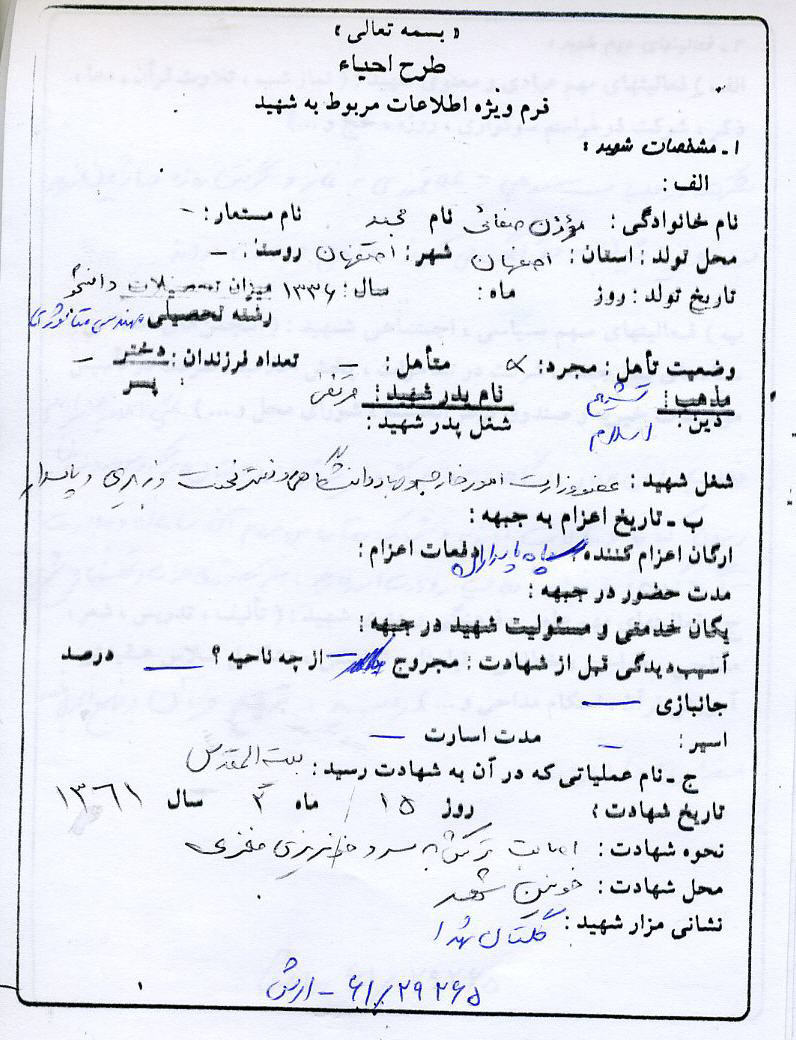 « بسمه تعالی »
طرح احیاء
فرم ویژه اطلاعات مربوط به شهید
۱ـ مشخصات شهید :
الف :
نام خانوادگی : مؤذن صفائی نام مجید نام مستعار : -
محل تولد : استان : اصفهان شهر : اصفهان روستا : -
تاریخ تولد : روز ماه : سال : ۱۳۳۶ میزان تحصیلات دانشجو
رشته تحصیلی مهندسی متالورژی
وضعیت تأهل : مجرد : × متأهل : - تعداد فرزندان : دختر -
پسر
مذهب : تشیع نام پدر شهید : مرتضی
دین : اسلام شغل پدر شهید :
شغل شهید : عضو وزارت امور خارجه و جهاد دانشگاهی و دفتر نخست وزیری و پاسدار
ب ـ تاریخ اعزام به جبهه :
ارگان اعزام کننده : سپاه پاسداران دفعات اعزام :
مدت حضور در جبهه :
یگان خدمتی و مسئولیت شهید در جبهه :
آسیب‌دیدگی قبل از شهادت : مجروح - از چه ناحیه ؟ - درصد
جانبازی -
اسیر : - مدت اسارت -
ج ـ نام عملیاتی که در آن به شهادت رسید : بیت المقدس
تاریخ شهادت : روز ۱۵ / ماه ۲ سال ۱۳۶۱
نحوه شهادت : اصابت ترکش به سر و خونریزی مغزی
محل شهادت : خونین شهر
نشانی مزار شهید : گلستان شهدا
۶۱/۲۹۲۶۵ -